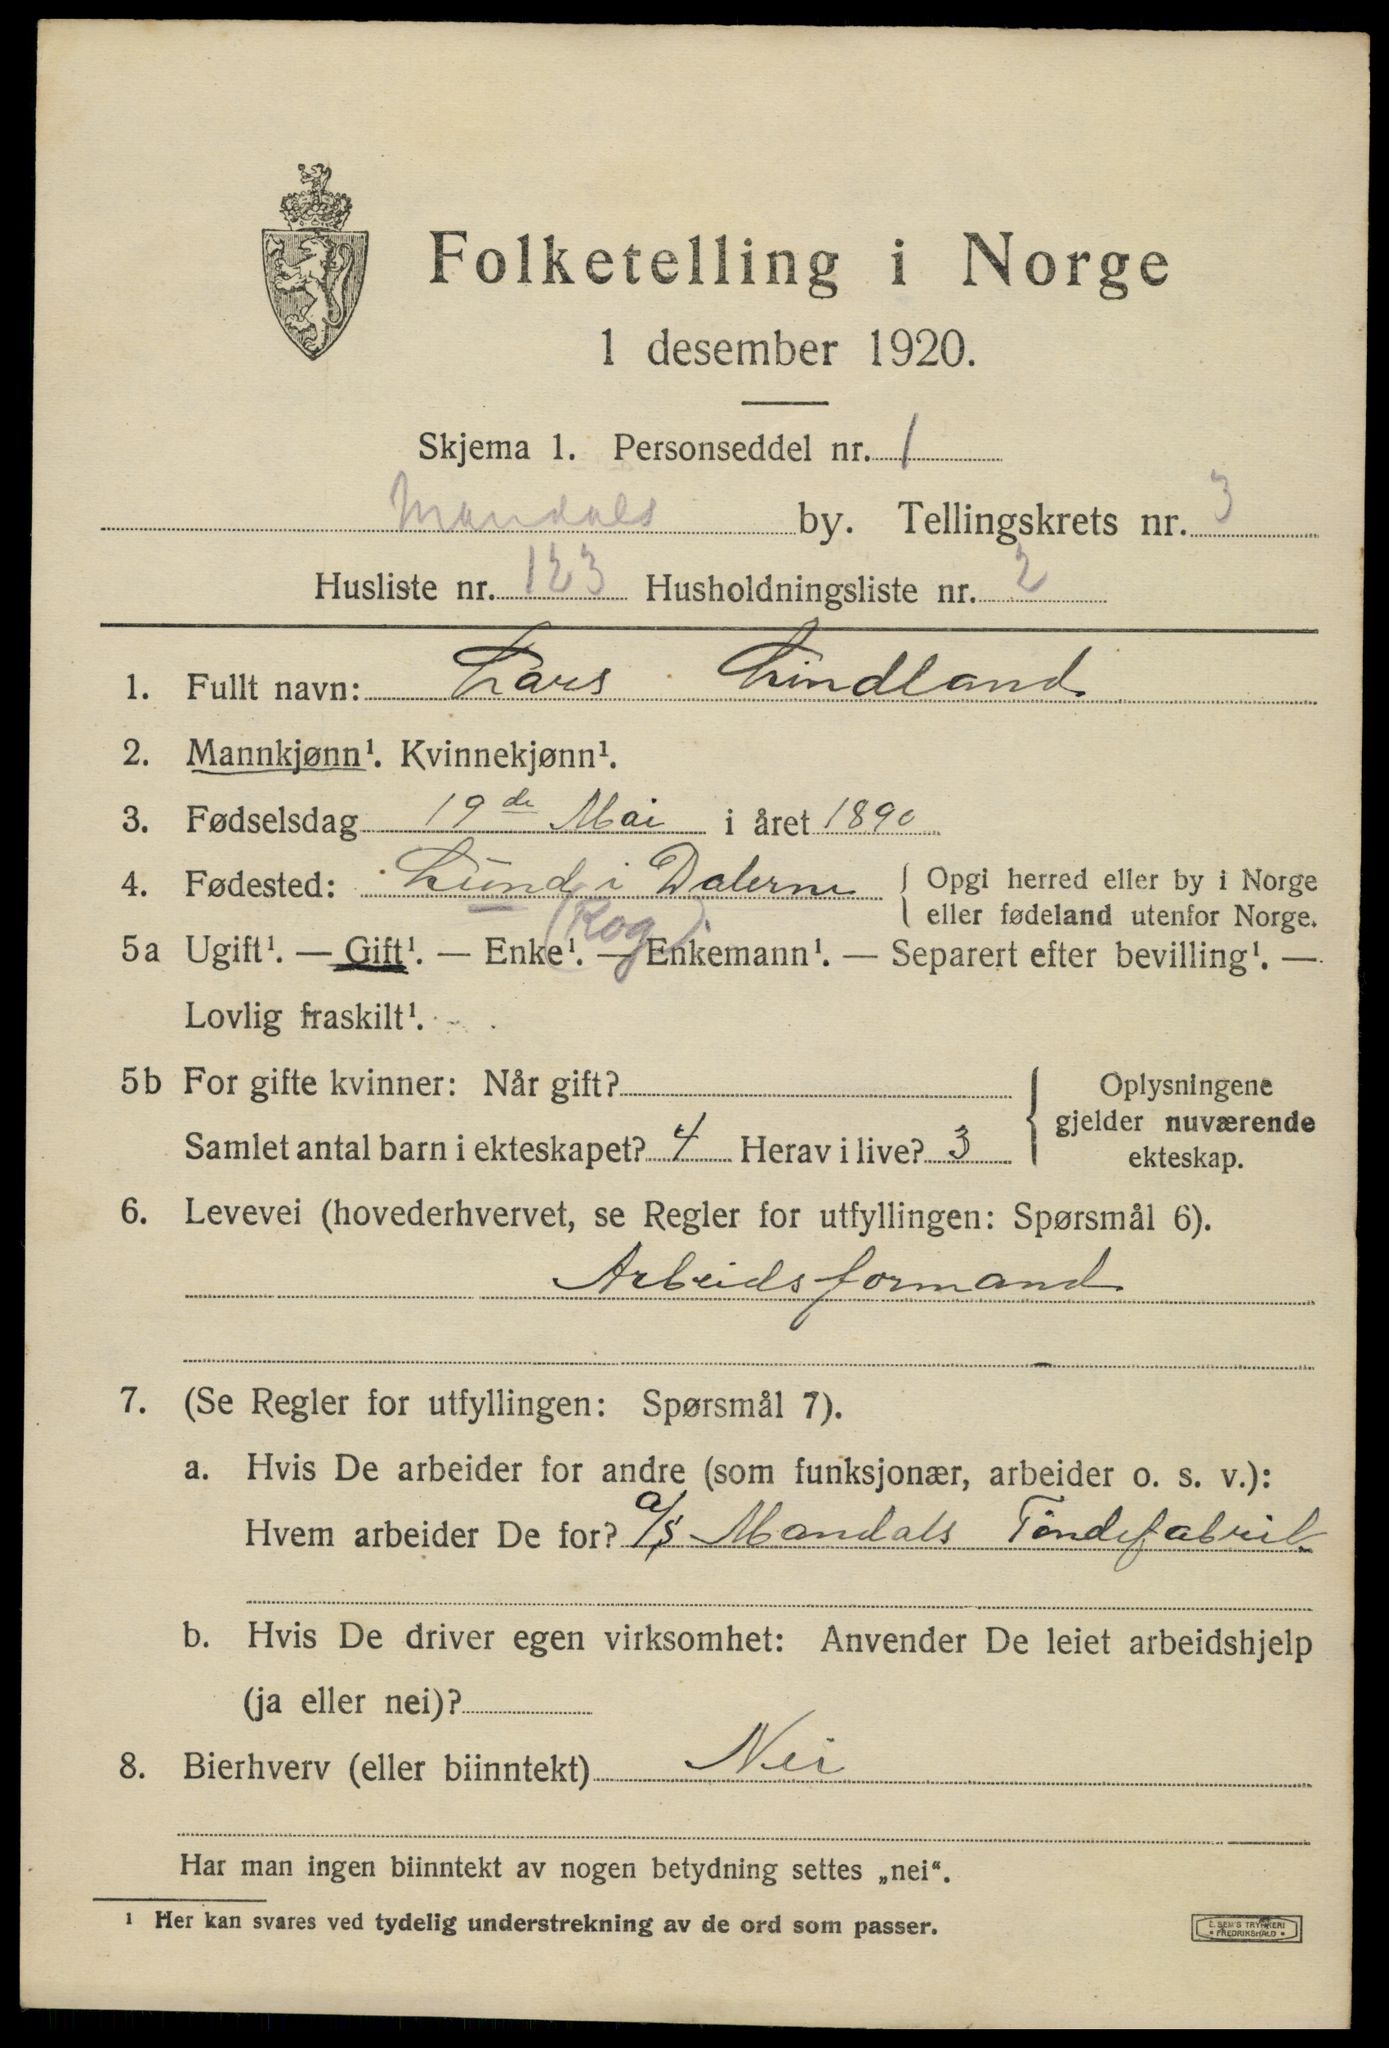 Folketelling i Norge
1 desember 1920.
Skjema 1. Personseddel nr. 1
Mandals by. Tellingskrets nr. 3
Husliste nr. 123 Husholdningsliste nr. 2
1. Fullt navn: Lars Lindland
2. Mannkjønn¹. Kvinnekjønn¹.
3. Fødselsdag 19de Mai i året 1890
4. Fødested: Lund i Dalerne { Opgi herred eller by i Norge
eller fødeland utenfor Norge.
(Rog.)
5a Ugift¹. — Gift¹. — Enke¹. — Enkemann¹. — Separert efter bevilling¹. —
Lovlig fraskilt¹.
5b For gifte kvinner: Når gift?
Samlet antal barn i ekteskapet? 4 Herav i live? 3
{ Oplysningene
gjelder nuværende
ekteskap.
6. Levevei (hovederhvervet, se Regler for utfyllingen: Spørsmål 6).
Arbeidsformand
7. (Se Regler for utfyllingen: Spørsmål 7).
a. Hvis De arbeider for andre (som funksjonær, arbeider o. s. v.):
Hvem arbeider De for? a/s Mandals Tøndefabrik
b. Hvis De driver egen virksomhet: Anvender De leiet arbeidshjelp
(ja eller nei)?
8. Bierhverv (eller biinntekt) Nei
Har man ingen biinntekt av nogen betydning settes „nei“.
¹ Her kan svares ved tydelig understrekning av de ord som passer.
E. SEM'S TRYKKERI
* FREDRIKSHALD *